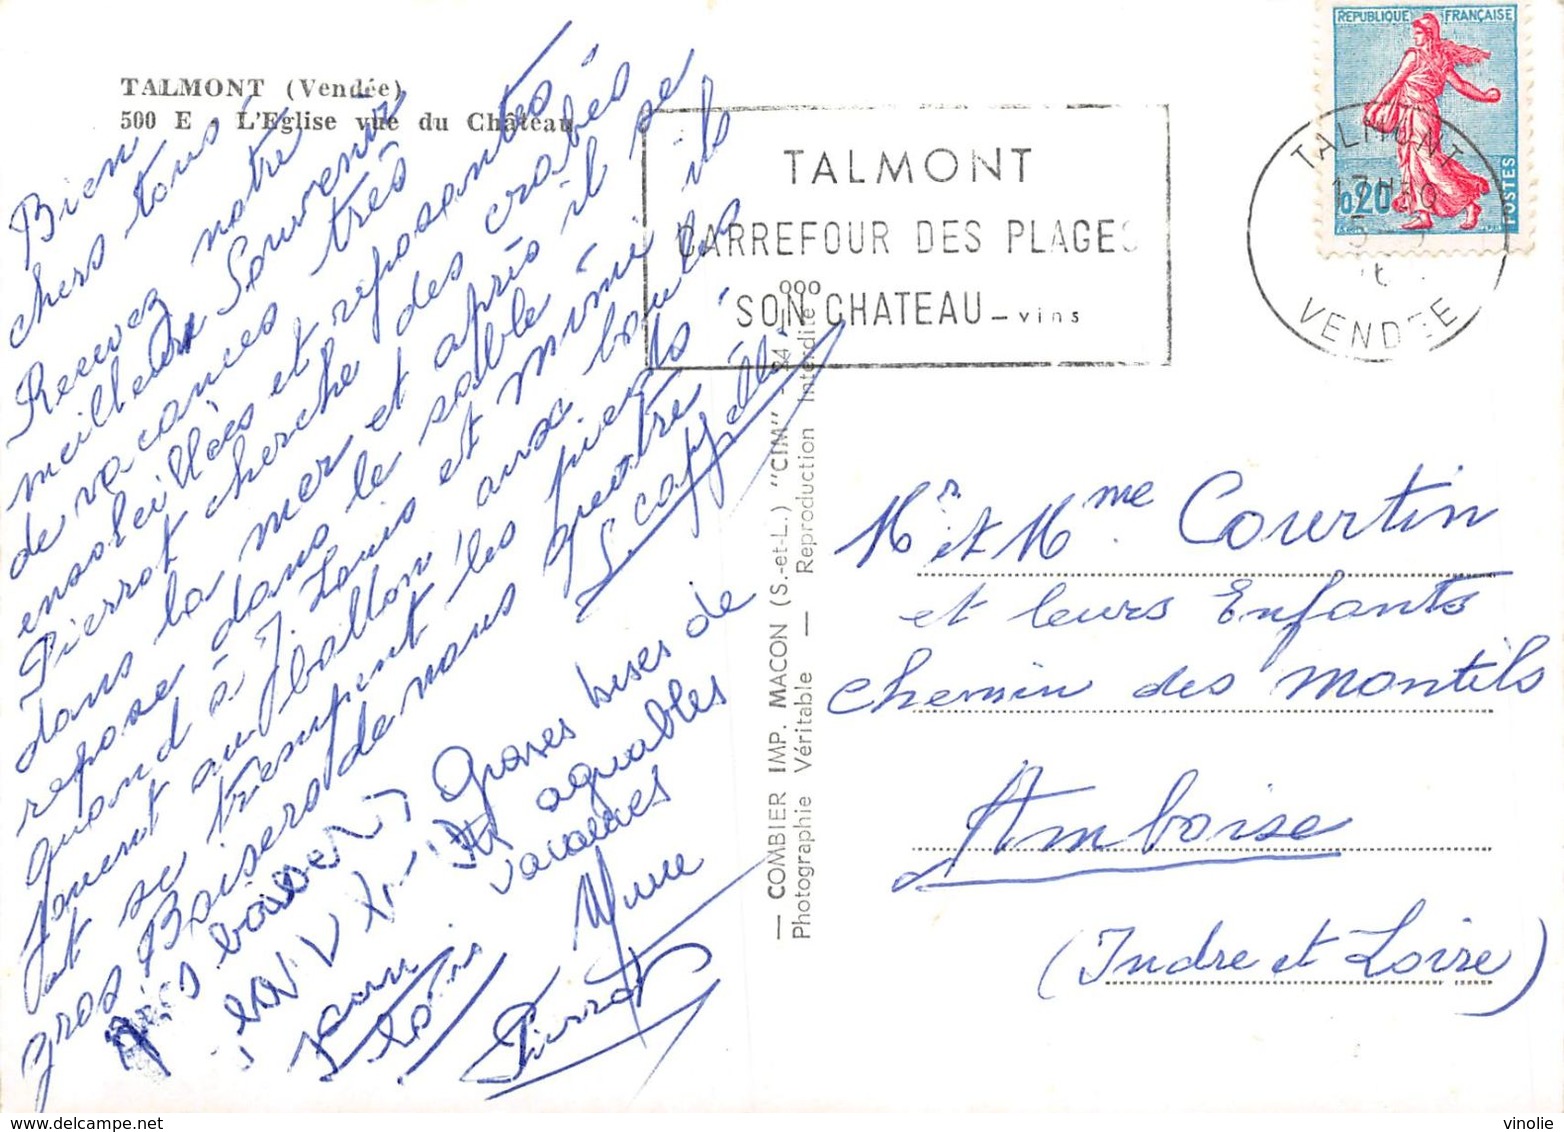 TALMONT (Vendée)
500 E - L'Eglise vue du Château
Bien
chers tous
Recevez notre
meilleur Souvenir
de vacances très
ensoleillées et reposantes
Pierrot cherche des crabes
dans la mer et après il se
repose dans le sable
quand à J. Louis et Mimi ils
jouent au ballon, aux boules
et se trempent les pieds
gros Baisers de nous quatre
S cappelli
gros baisers
Jean
Louis
Grosses bises de
agréables
vacances
Pierrot
— COMBIER IMP. MACON (S.-et-L.) "CIM"
Photographie Véritable — Reproduction Interdite
TALMONT
CARREFOUR DES PLAGES
SON CHATEAU - vins
REPUBLIQUE FRANÇAISE
0,20
POSTES
TALMONT
VENDEE
Mr et Mme Courtin
et leurs Enfants
chemin des montils
Amboise
(Indre et Loire)
www.delcampe.net
vinolie